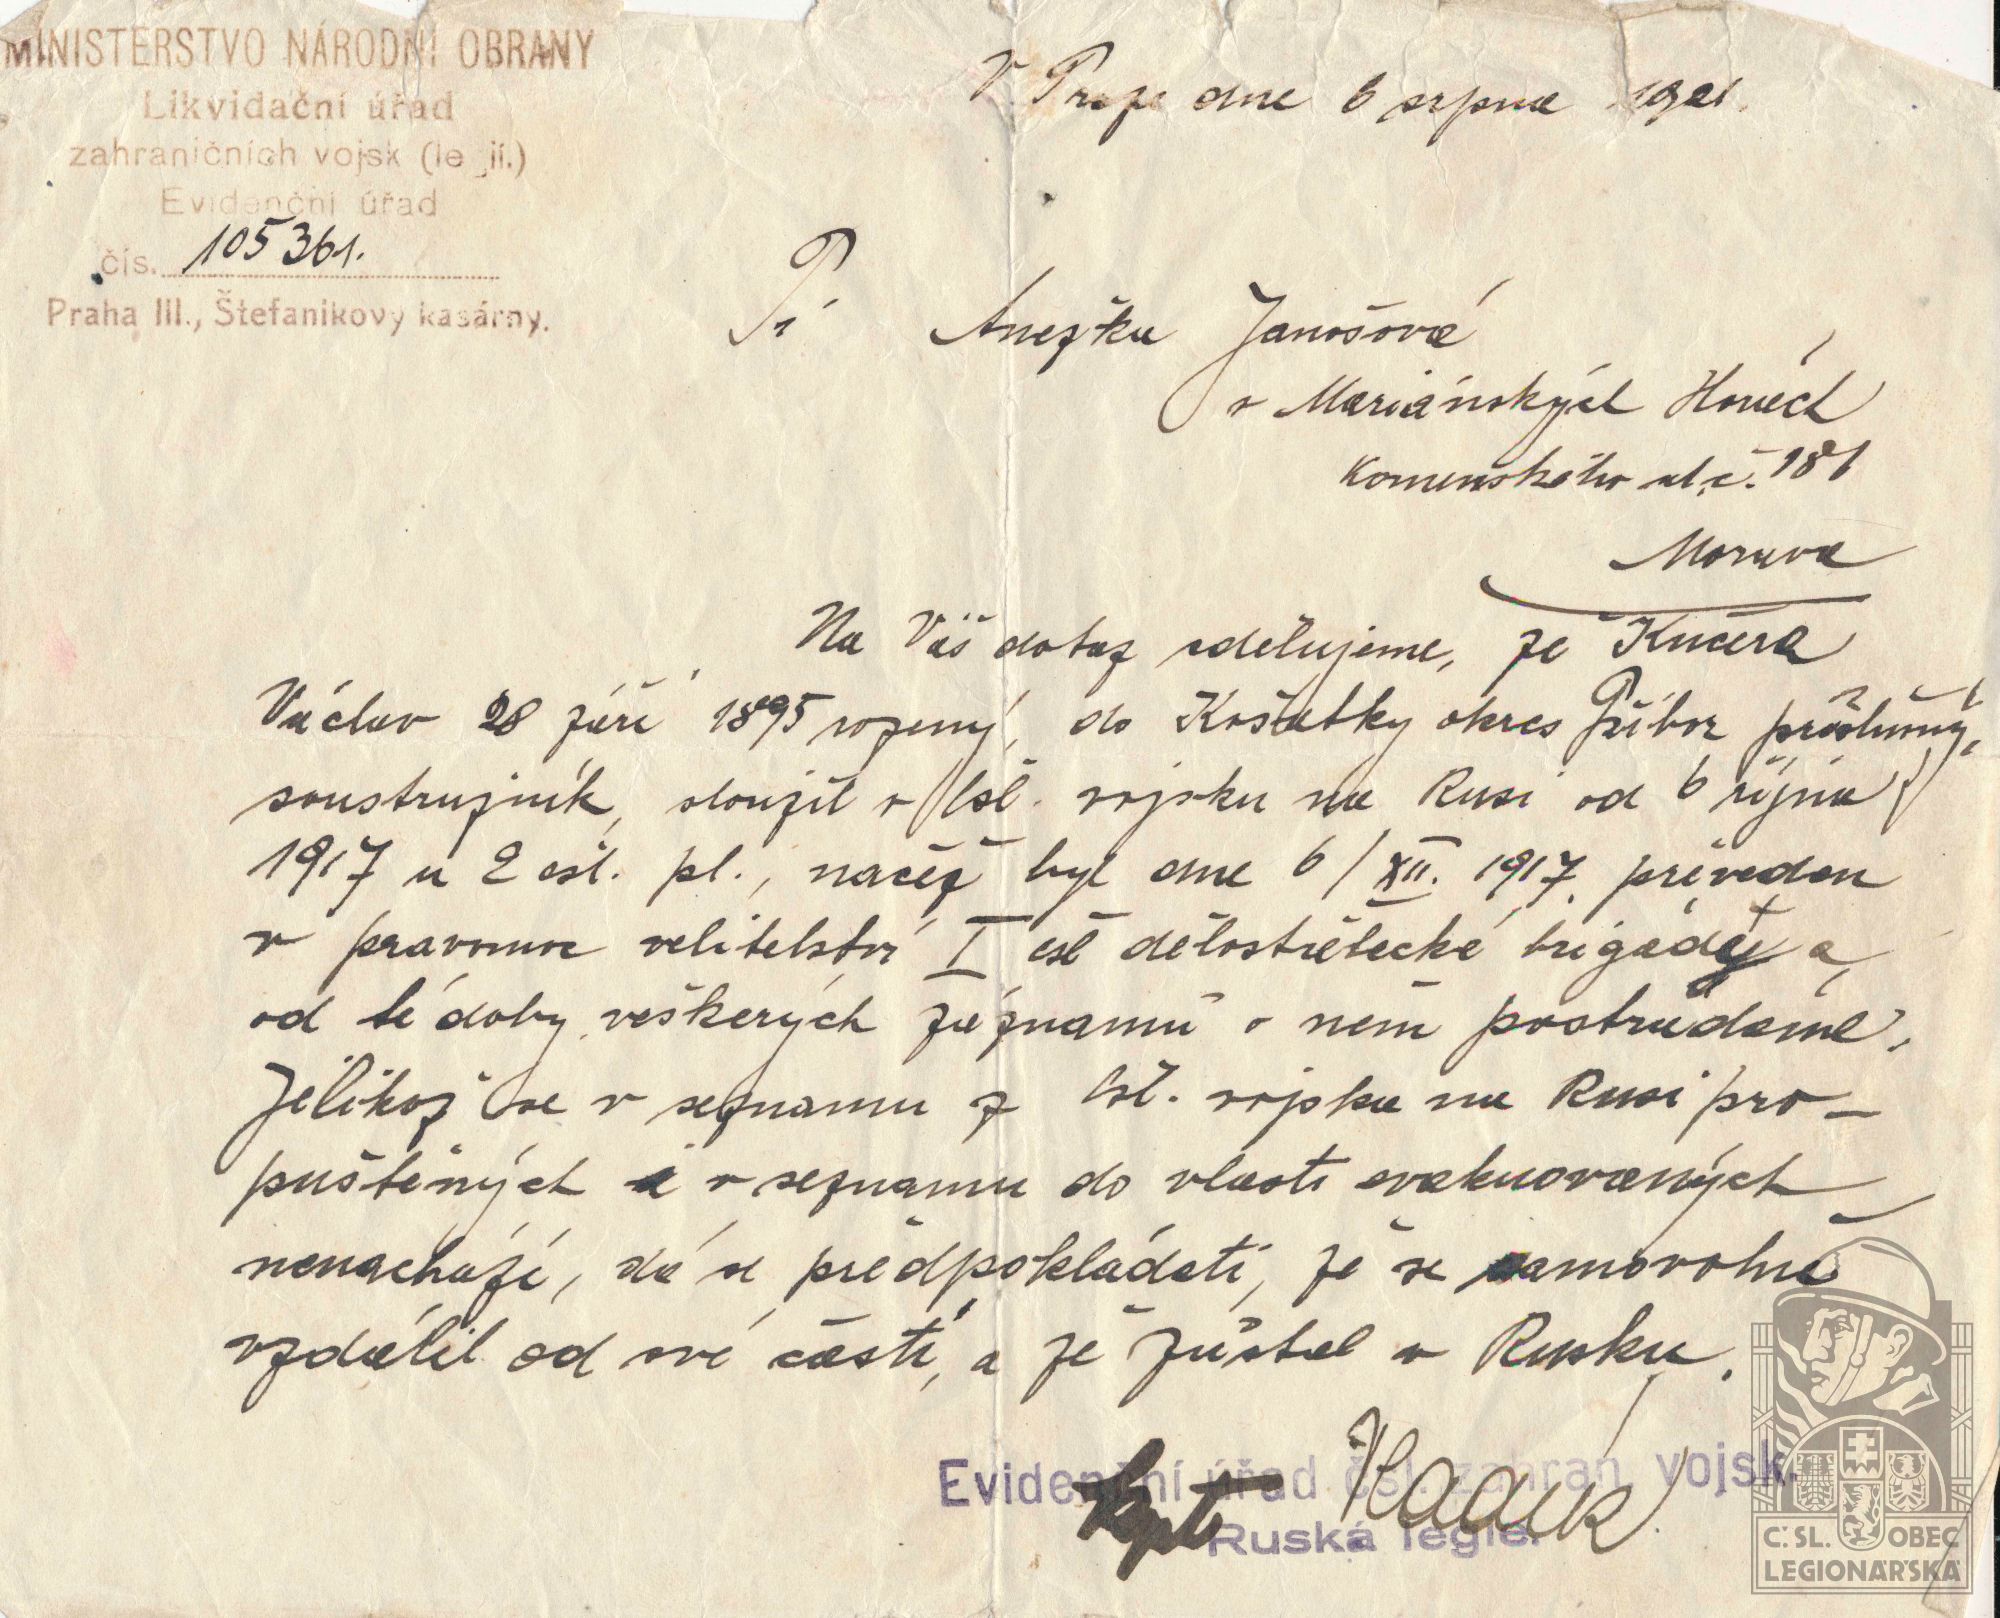 MINISTERSTVO NÁRODNÍ OBRANY
Likvidační úřad
zahraničních vojsk (le jí.)
Evidenční úřad
čís. 105361.
Praha III., Štefanikovy kasárny.
V Praze dne 6 srpna 1921.
Pí Anežku Janošová
v Mariánských Horách
Komenského ul. č. 181
Morava
Na Váš dotaz sdělujeme, že Kučera
Václav 28 září 1895 rozený, do Košatky okres Příbor příslušný,
soustružník, sloužil v čsl. vojsku na Rusi od 6 října
1917 u 2 čsl. pl., načež byl dne 6/XII. 1917. převeden
v pravomoc velitelství I čsl dělostřelecké brigády a
od té doby veškerých záznamů o něm postrádáme.
Jelikož se v seznamu z čsl. vojska na Rusi pro-
puštěných a v seznamu do vlasti evakuovaných
nenachází, dá se předpokládati, že se samovolně
vzdálil od své části, a že zůstal v Rusku.
Evidenční úřad čsl. zahran. vojsk.
Ruská legie.
kpt
Č.SL. OBEC
LEGIONÁŘSKÁ